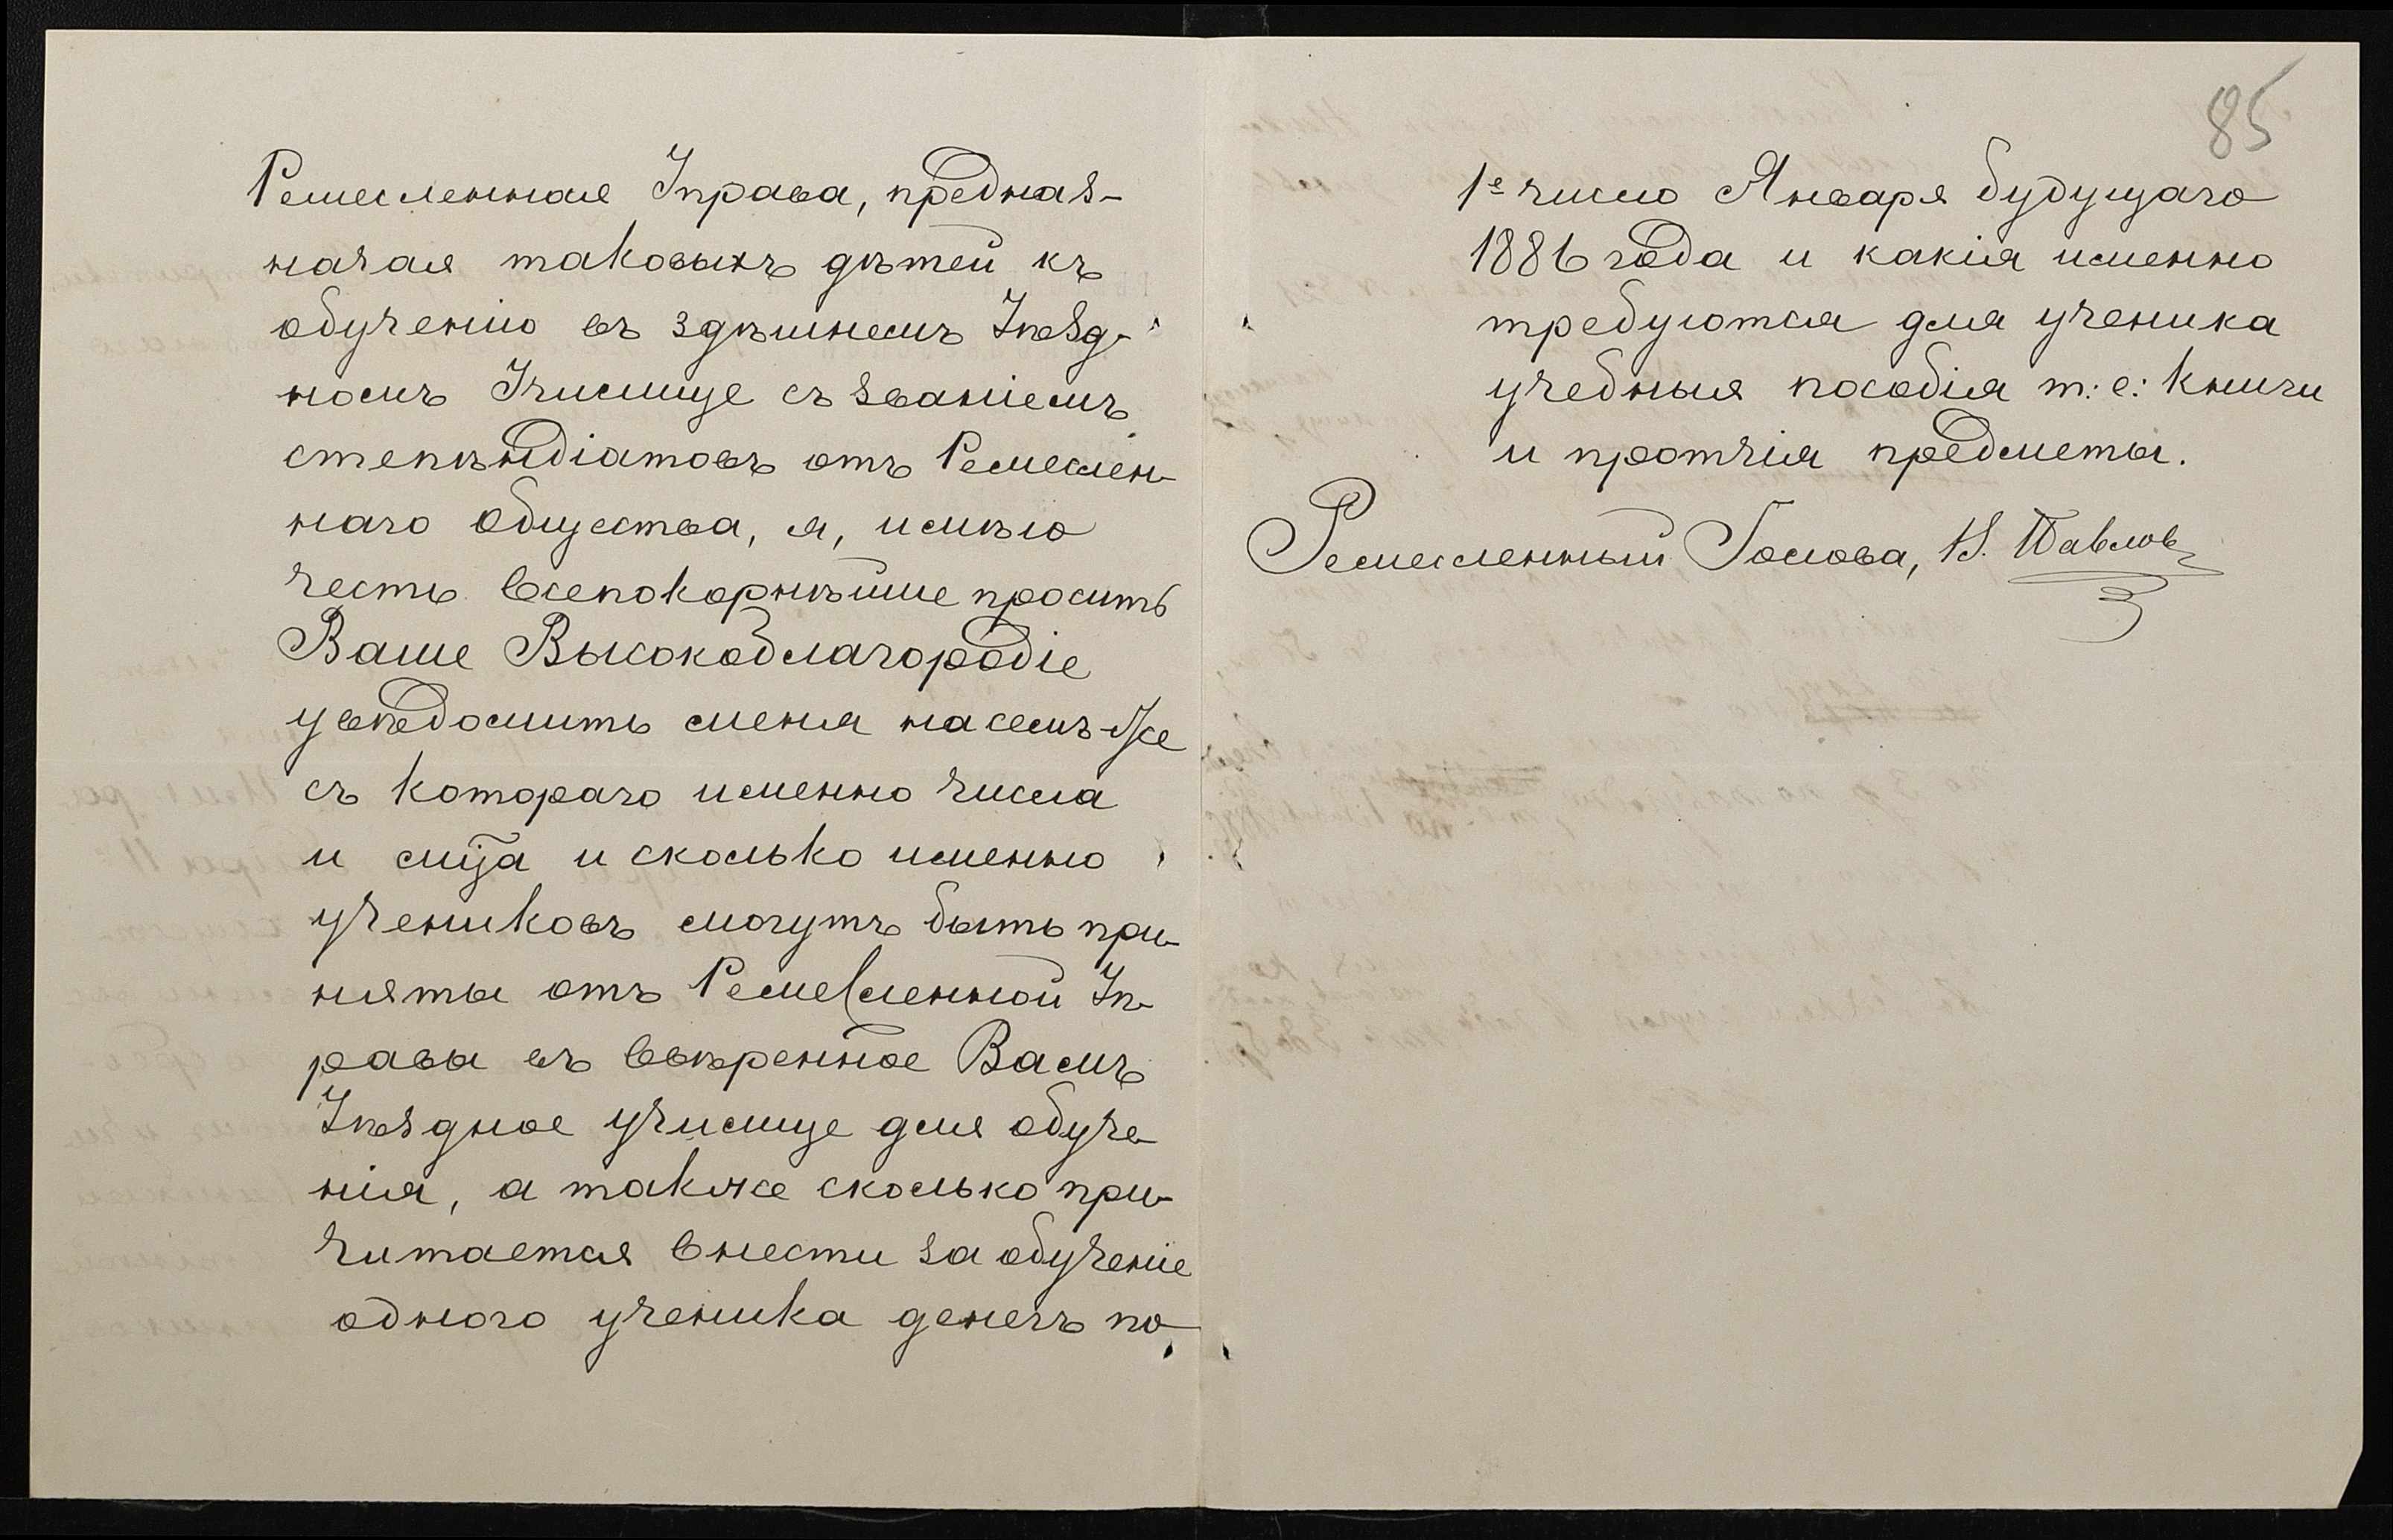 Ремесленная Управа, предназ-
начая таковыхъ дѣтей къ
обученію въ здѣшнемъ Уѣзд-
номъ Училище съ званіемъ
степѣндіатовъ отъ Ремеслен-
наго общества, я, имѣю
честь всепокорнѣйше просить
Ваше Высокоблагородіе
увѣдомить меня на семъ-же
съ котораго именно числа
и мц̃а и сколько именно
учениковъ могутъ быть при-
няты отъ Ремесленной Уп-
равы въ ввѣренное Вамъ
Уѣздное училище для обуче-
нія, а также сколько при-
читается внести за обученіе
одного ученика денегъ по
85
1е число Января будущаго
1886 года и какія именно
требуются для ученика
учебныя пособія т: е: книги
и протчія предметы.
Ремесленный Голова, Павлов